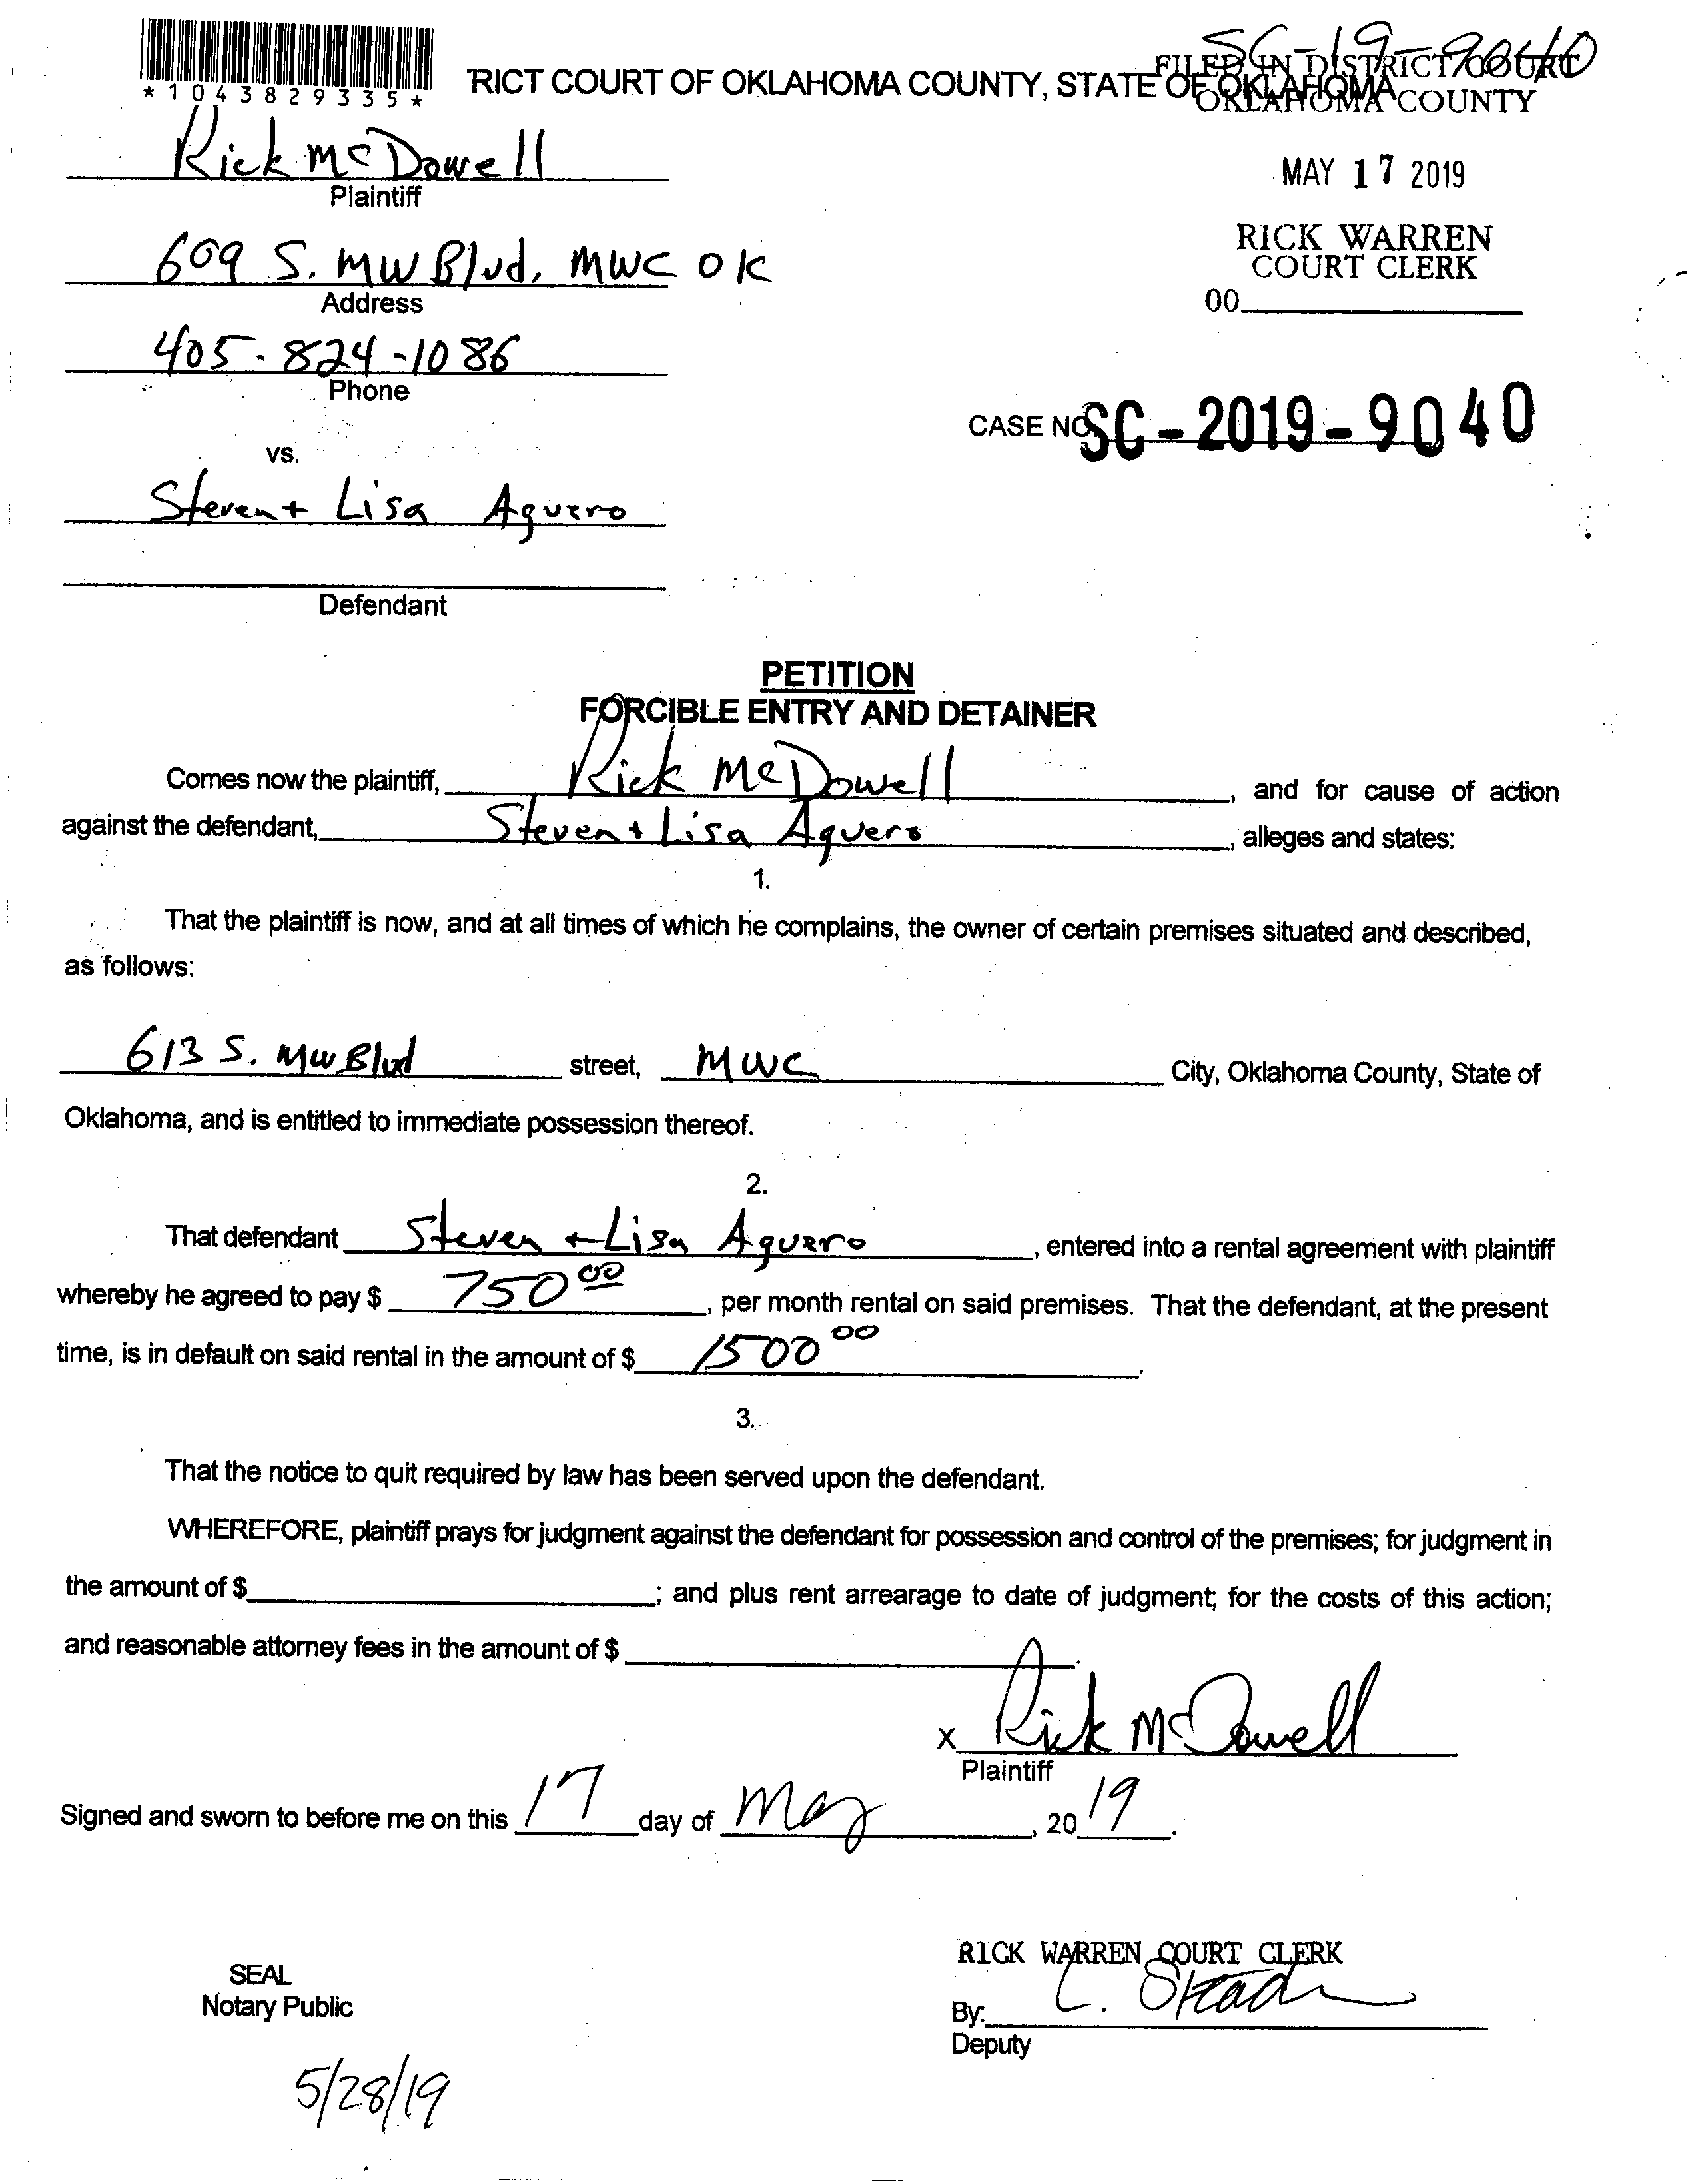 SC-19-9040
*1043829335*
RICT COURT OF OKLAHOMA COUNTY, STATE OF OKLAHOMA
FILED IN DISTRICT COURT
OKLAHOMA COUNTY
Rick McDowell
Plaintiff
MAY 17 2019
609 S. MW Blvd, MWC OK
Address
RICK WARREN
COURT CLERK
00
405-824-1086
Phone
CASE NO. SC-2019-9040
vs.
Steven + Lisa Aguero
Defendant
PETITION
FORCIBLE ENTRY AND DETAINER
Comes now the plaintiff, Rick McDowell, and for cause of action
against the defendant, Steven + Lisa Aguero, alleges and states:
1.
That the plaintiff is now, and at all times of which he complains, the owner of certain premises situated and described,
as follows:
613 S. MW Blvd street, MWC City, Oklahoma County, State of
Oklahoma, and is entitled to immediate possession thereof.
2.
That defendant Steven + Lisa Aguero, entered into a rental agreement with plaintiff
whereby he agreed to pay $ 750 00, per month rental on said premises. That the defendant, at the present
time, is in default on said rental in the amount of $ 1500 00.
3.
That the notice to quit required by law has been served upon the defendant.
WHEREFORE, plaintiff prays for judgment against the defendant for possession and control of the premises; for judgment in
the amount of $ ; and plus rent arrearage to date of judgment; for the costs of this action;
and reasonable attorney fees in the amount of $ .
x Rick McDowell
Plaintiff
Signed and sworn to before me on this 17 day of May, 2019.
RICK WARREN COURT CLERK
SEAL
Notary Public
By:
Deputy
5/28/19